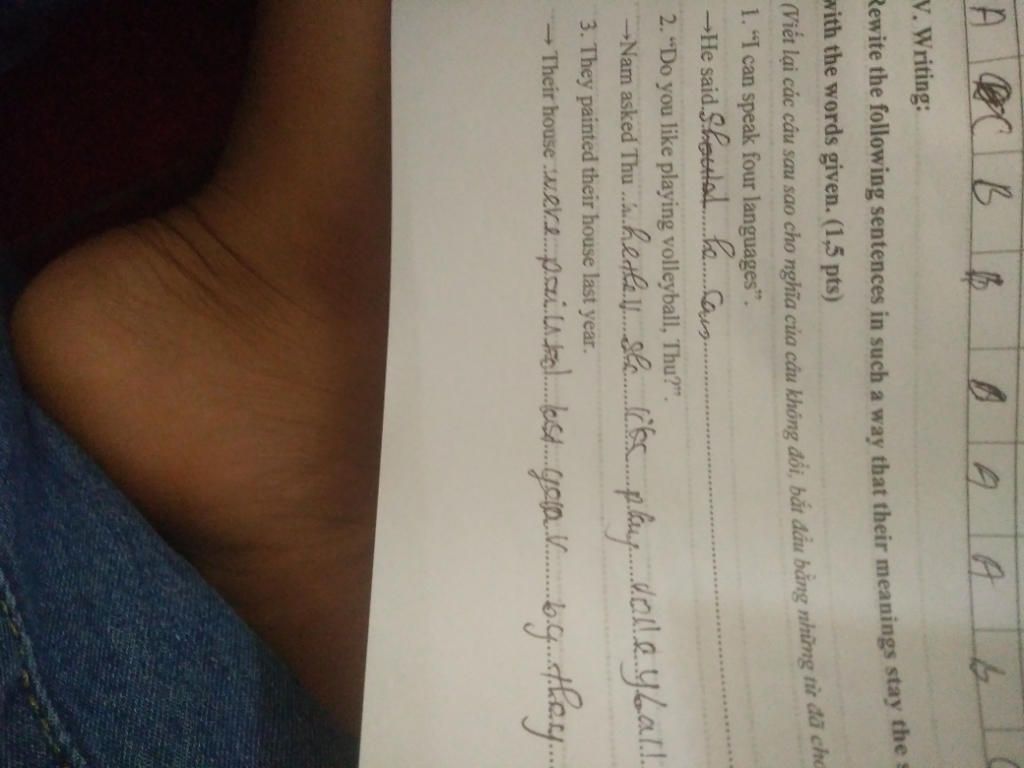 A C B B B A A b
V. Writing:
Rewite the following sentences in such a way that their meanings stay the s
with the words given. (1,5 pts)
(Viết lại các câu sau sao cho nghĩa của câu không đổi, bắt đầu bằng những từ đã cho
1. "I can speak four languages".
→He said should he can
2. "Do you like playing volleyball, Thu?".
→Nam asked Thu she like play volleyball
3. They painted their house last year.
→ Their house were last by they